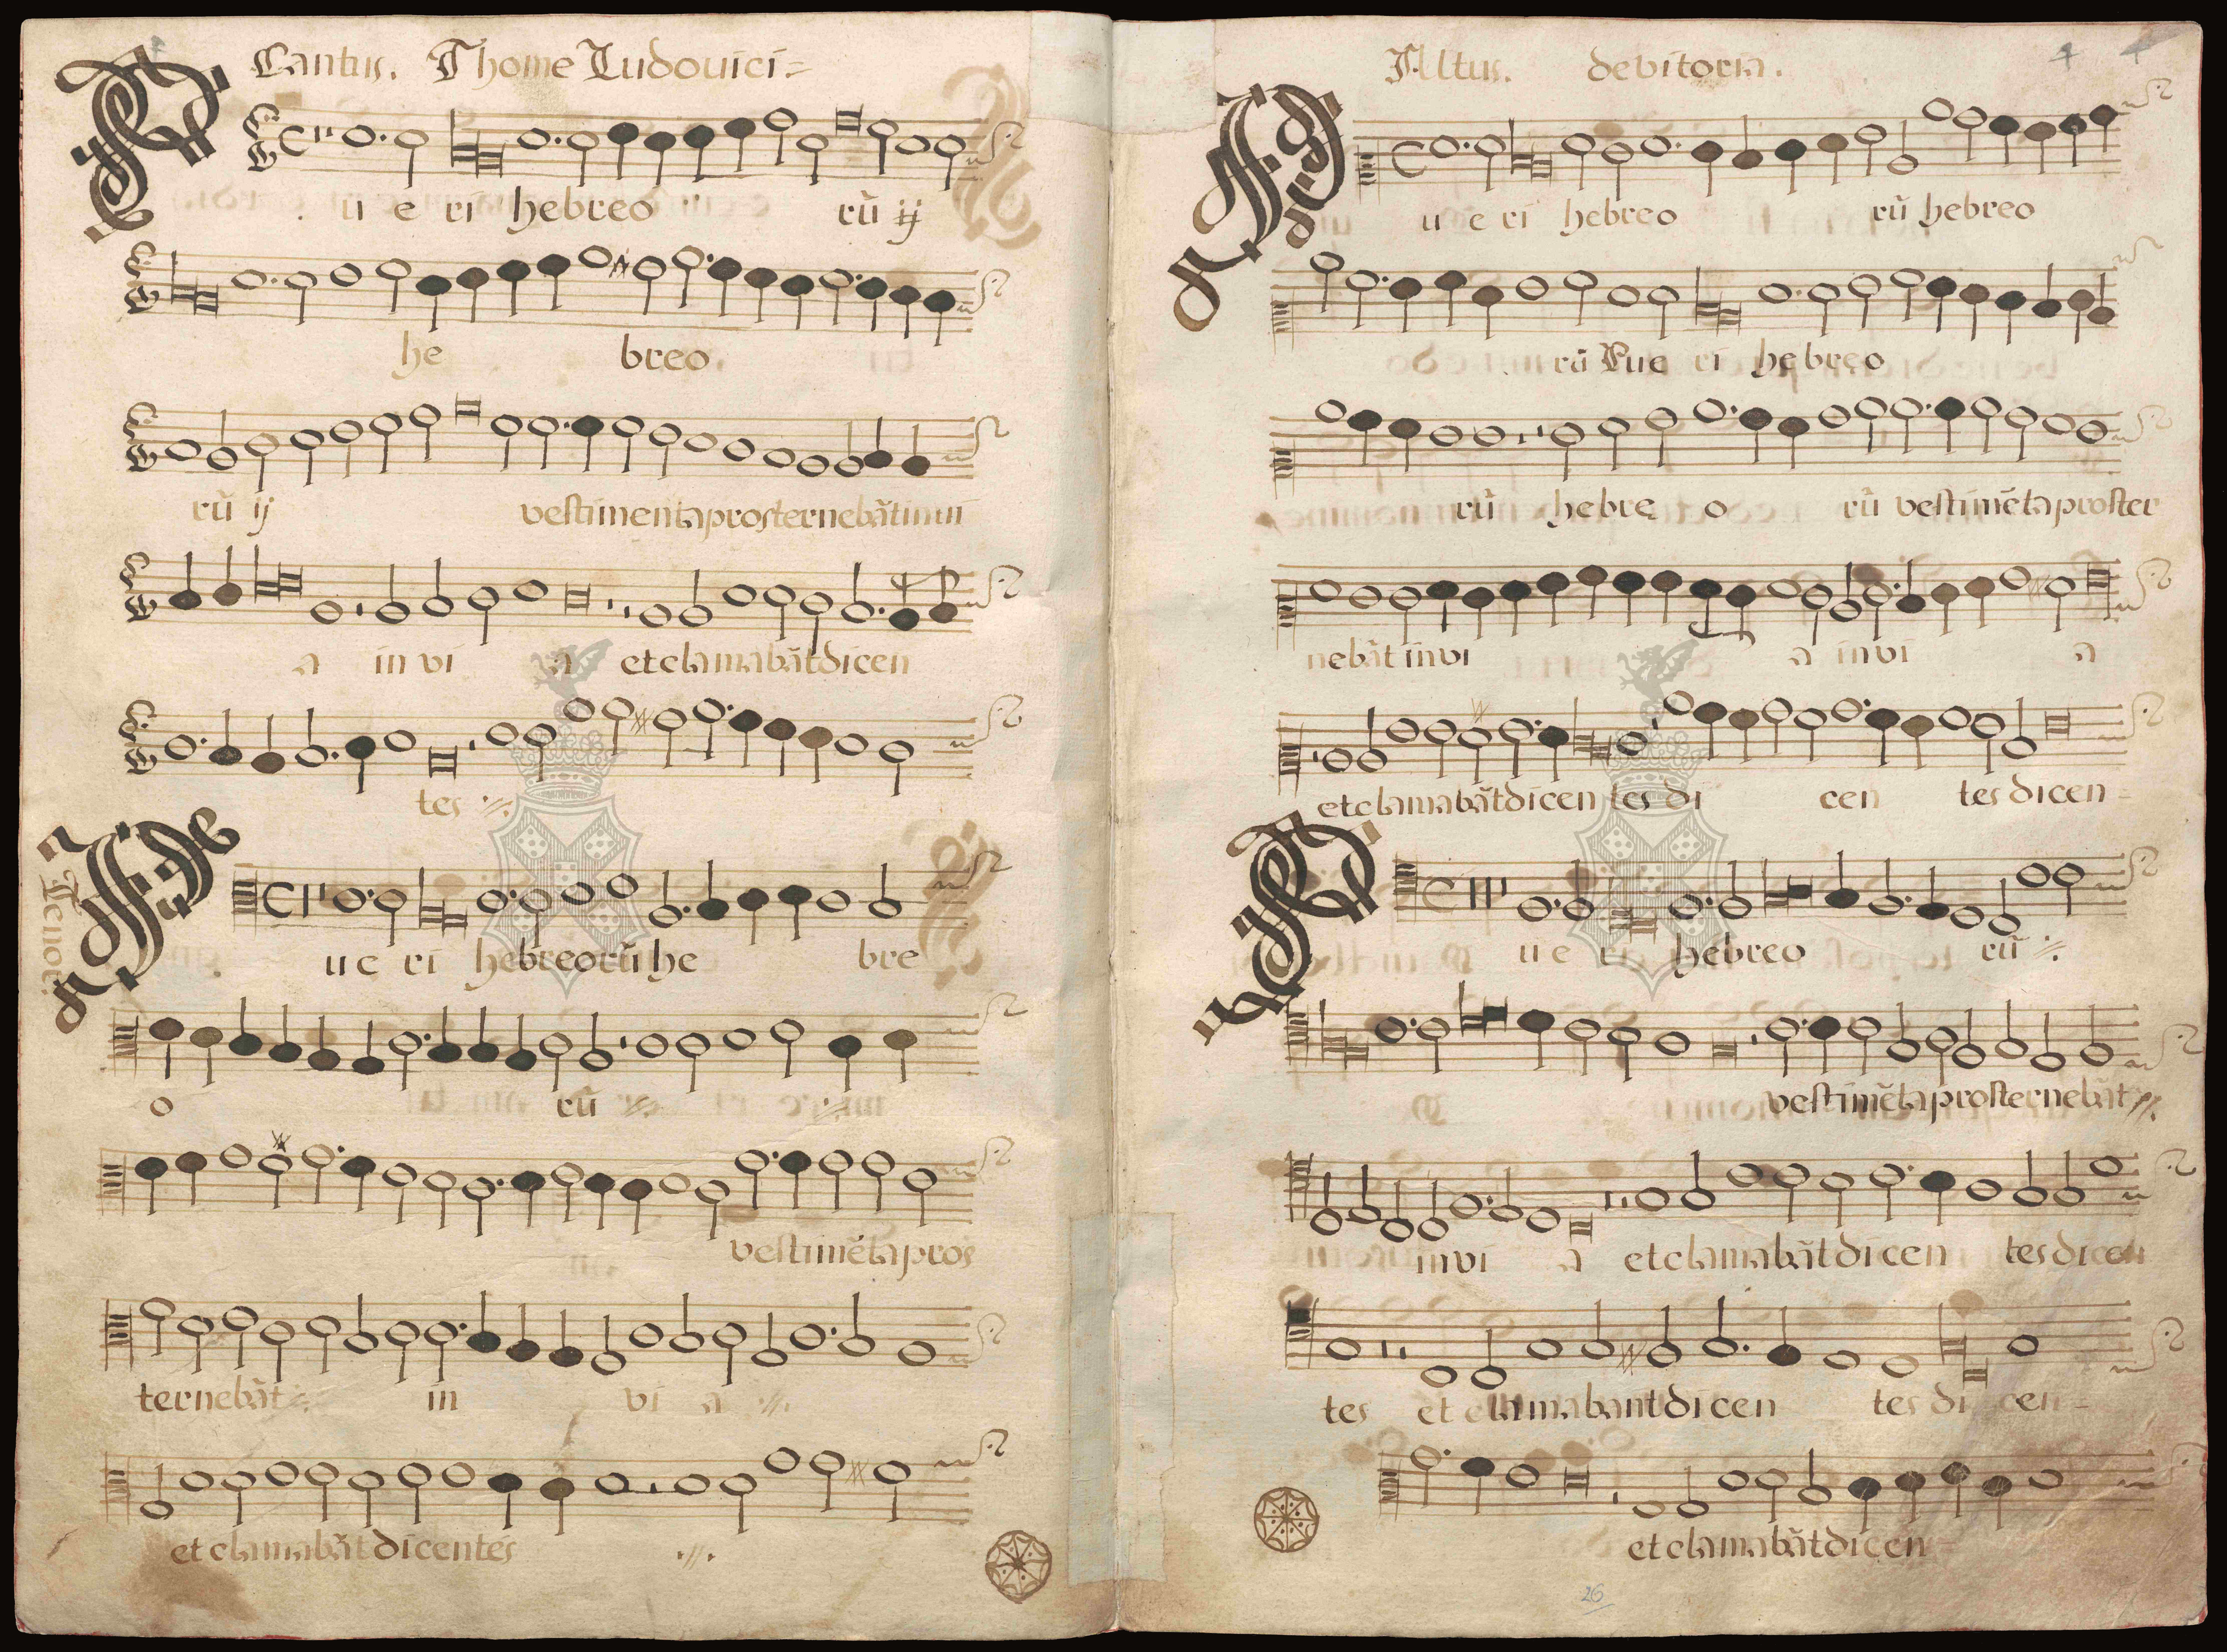 Cantus. Thome Ludouici
P
u e ri hebreo rũ ij
he breo
rũ ij vestimenta prosternebãt in ui
a in vi a et clamabãt dicen
tes ·//.
Tenor.
P
u e ri hebreorũ he bre
o rũ ·//. ·//.
vestimẽta pros
ternebãt ·//. in vi a ·//.
et clamabãt dicentes ·//.
Altus. de vitoria.
4 4
P
u e ri hebreo rũ hebreo
rũ Pue ri hebreo
rũ hebre o rũ vestimẽta proster
nebãt in vi a in vi a
et clamabãt dicen tes di cen tes dicen
P
u e ri hebreo rũ ·//.
vestimẽta prosternebãt ·//.
in vi a et clamabãt dicen tes dicen
tes et clamabant dicen tes di cen
et clamabãt dicen
26